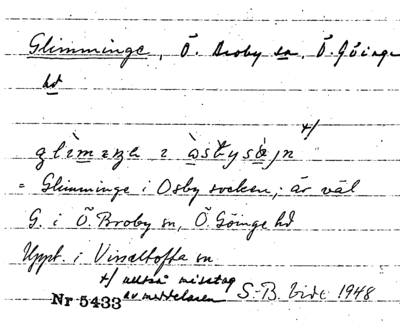 Glimminge, Ö. Broby sn, Ö. Göinge
hd
+/
glìmɪŋe ɪ òsbysòjn
= Glimminge i Osby socken; är väl
G. i Ö. Broby sn, Ö. Göinge hd
Uppt. i Visseltofta sn
+/ alltså misstag
Nr 5433 av meddelaren S.-B. Vide 1948